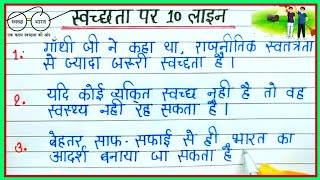 स्वच्छ भारत
स्वच्छता पर 10 लाइन
एक कदम स्वच्छता की ओर
1. गाँधी जी ने कहा था, राजनीतिक स्वतंत्रता
से ज्यादा जरूरी स्वच्छता है।
2. यदि कोई व्यक्ति स्वच्छ नहीं है तो वह
स्वस्थ्य नहीं रह सकता है।
3. बेहतर साफ-सफाई से ही भारत का
आदर्श बनाया जा सकता है